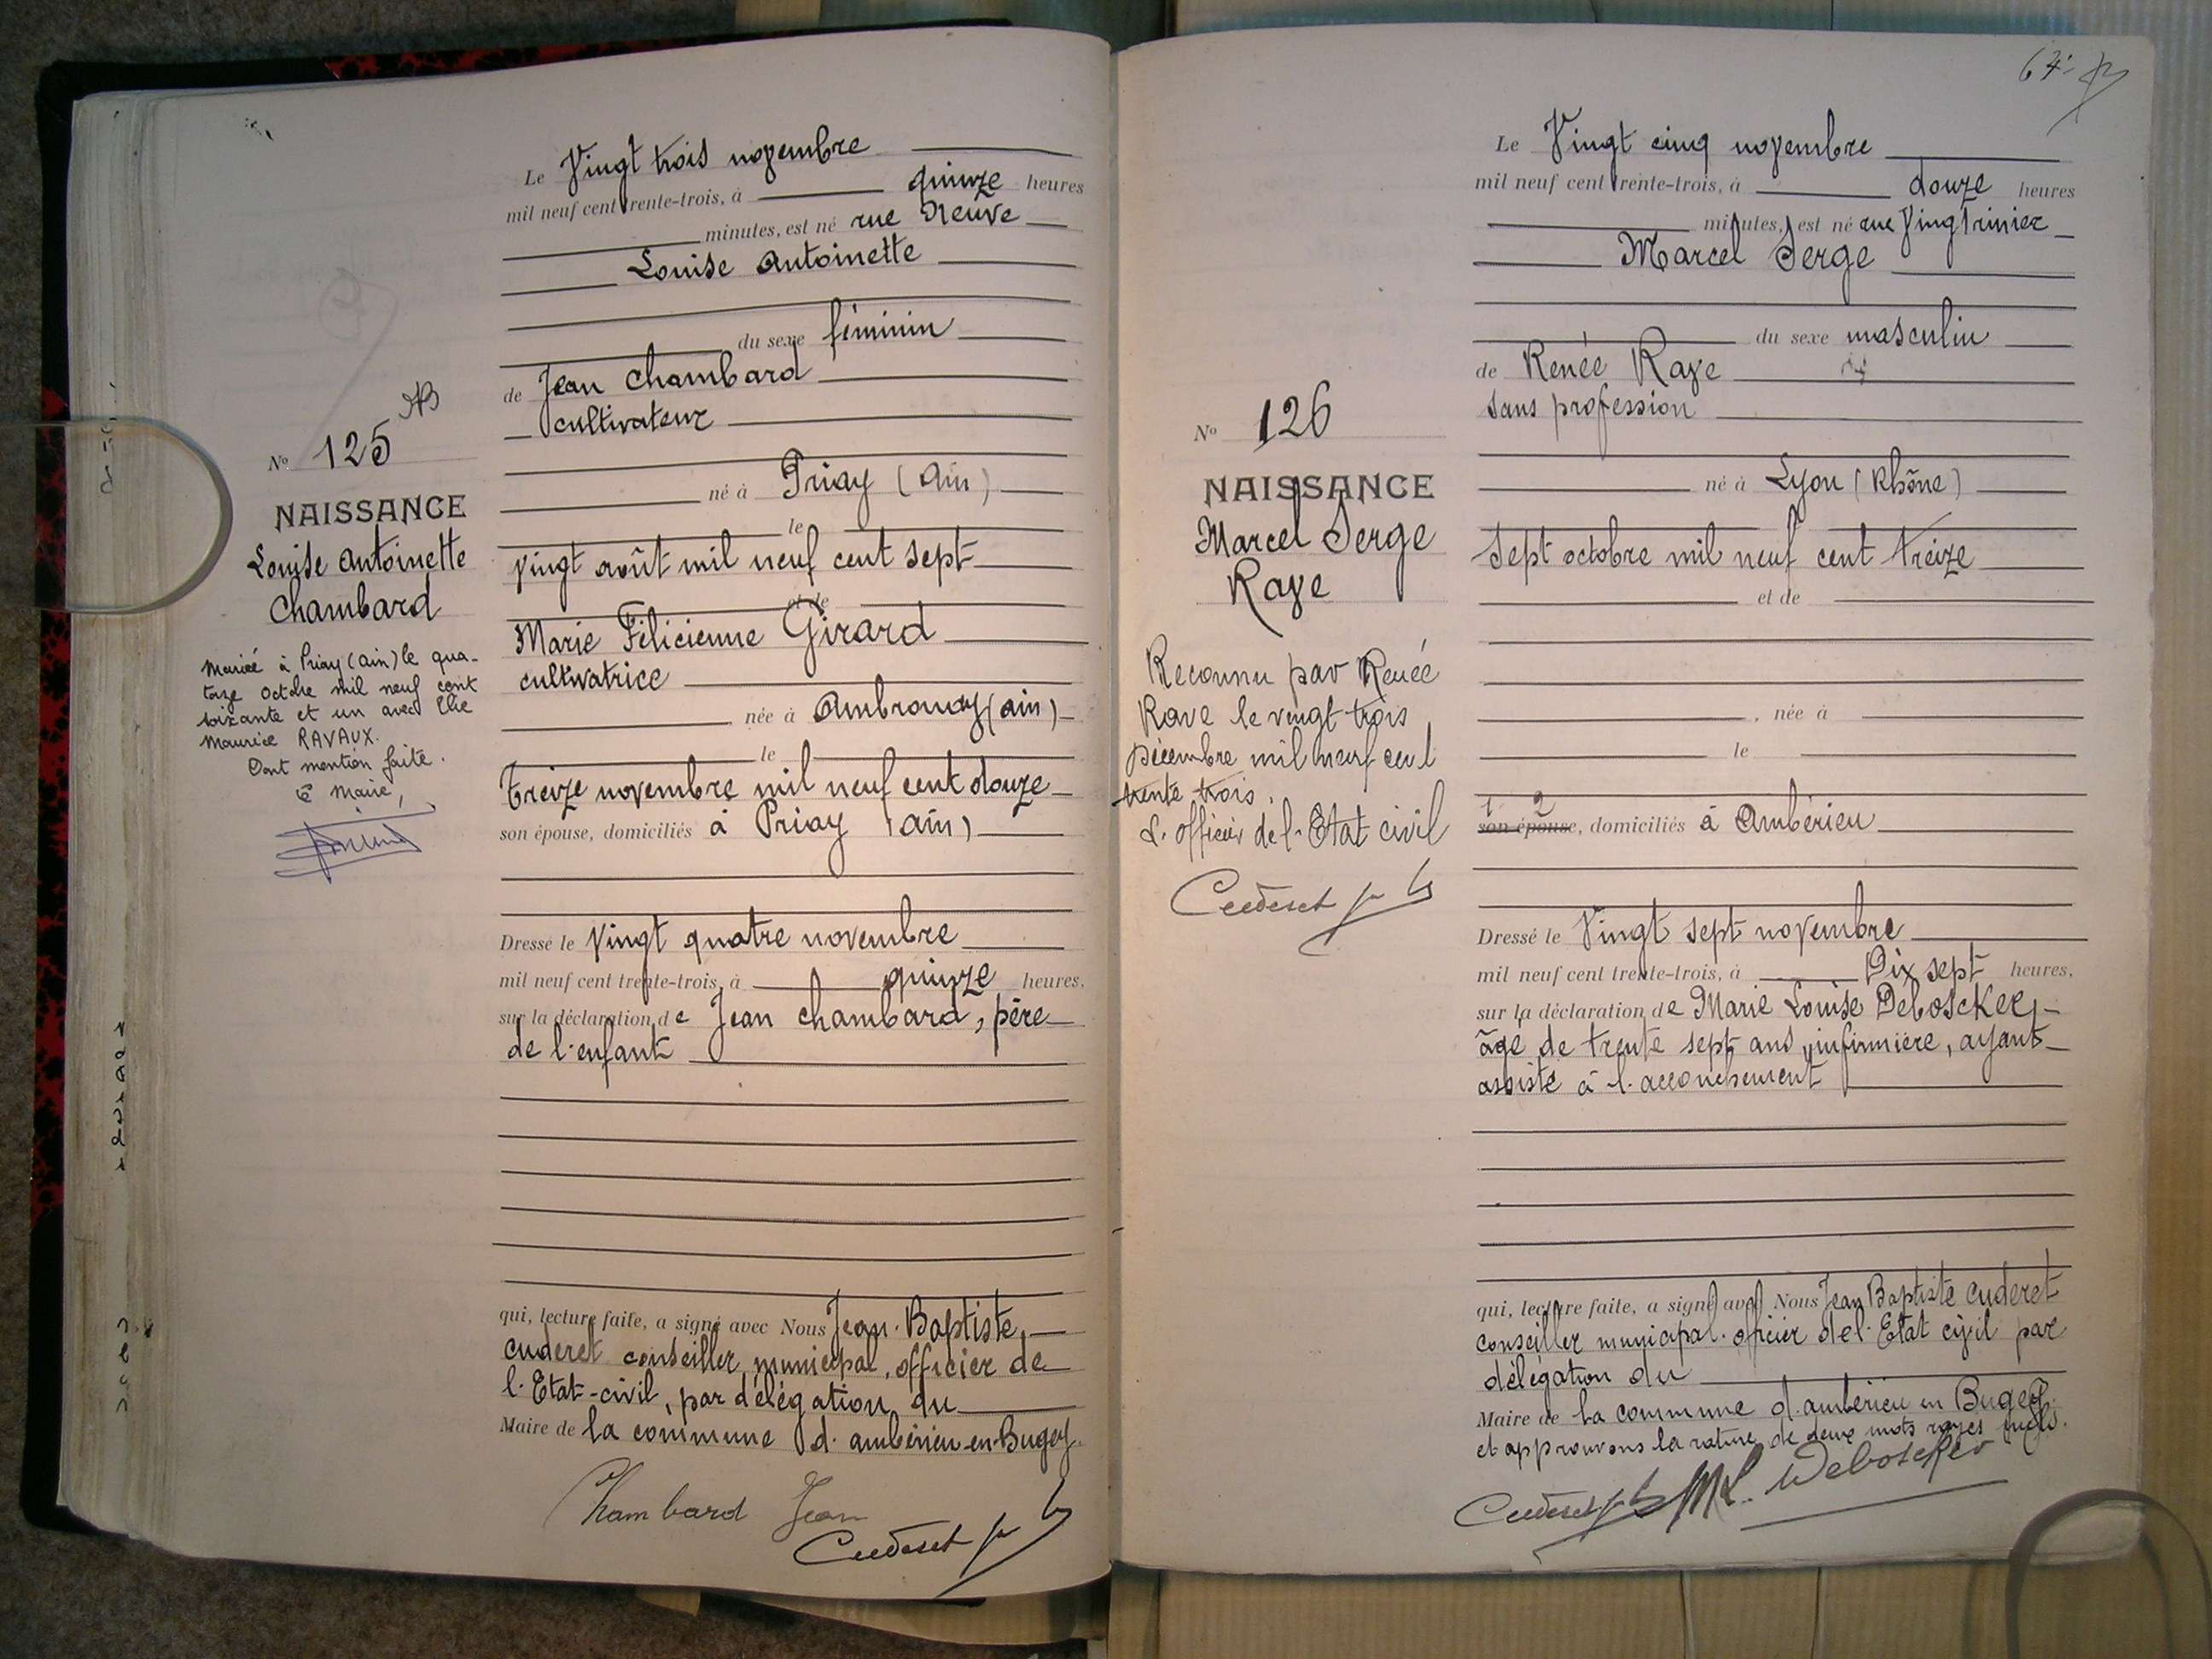 Le Vingt trois novembre
mil neuf cent trente-trois, à quinze heures
minutes, est né rue Neuve
Louise Antoinette
du sexe féminin
de Jean Chambard
cultivateur
né à Priay (Ain)
le
vingt août mil neuf cent sept
et de
Marie Félicienne Girard
cultivatrice
née à Ambronay (ain)
le
treize novembre mil neuf cent douze
son épouse, domiciliés à Priay (ain)
Dressé le Vingt quatre novembre
mil neuf cent trente-trois, à quinze heures,
sur la déclaration de Jean Chambard, père
de l'enfant
qui, lecture faite, a signé avec Nous Jean-Baptiste
Cuderet conseiller municipal, officier de
l'Etat-civil, par délégation du
Maire de la commune d'ambérieu-en-Bugey.
Chambard Jean
Cuderet
N° 125
NAISSANCE
Louise Antoinette
Chambard
Mariée à Priay (ain) le qua-
torze Octobre mil neuf cent
soixante et un avec Elie
Maurice RAVAUX.
Dont mention faite.
Le Maire,
67
Le Vingt cinq novembre
mil neuf cent trente-trois, à douze heures
minutes, est né rue Vingtrinier
Marcel Serge
du sexe masculin
de Renée Rave
sans profession
né à Lyon (Rhône)
sept octobre mil neuf cent treize
et de
, née à
le
1 2
son épouse, domiciliés à Ambérieu
Dressé le Vingt sept novembre
mil neuf cent trente-trois, à Dix sept heures,
sur la déclaration de Marie Louise Deboscker,
âgé de trente sept ans, infirmière, ayant
assisté à l'accouchement
qui, lecture faite, a signé avec Nous Jean Baptiste Cuderet
conseiller municipal, officier de l'Etat civil par
délégation du
Maire de la commune d'ambérieu en Bugey.
et approuvons la rature de deux mots rayés nuls.
Cuderet M L. Deboscker
N° 126
NAISSANCE
Marcel Serge
Rave
Reconnu par Renée
Rave le vingt trois
Décembre mil neuf cent
trente trois.
L'officier de l'Etat civil
Cuderet